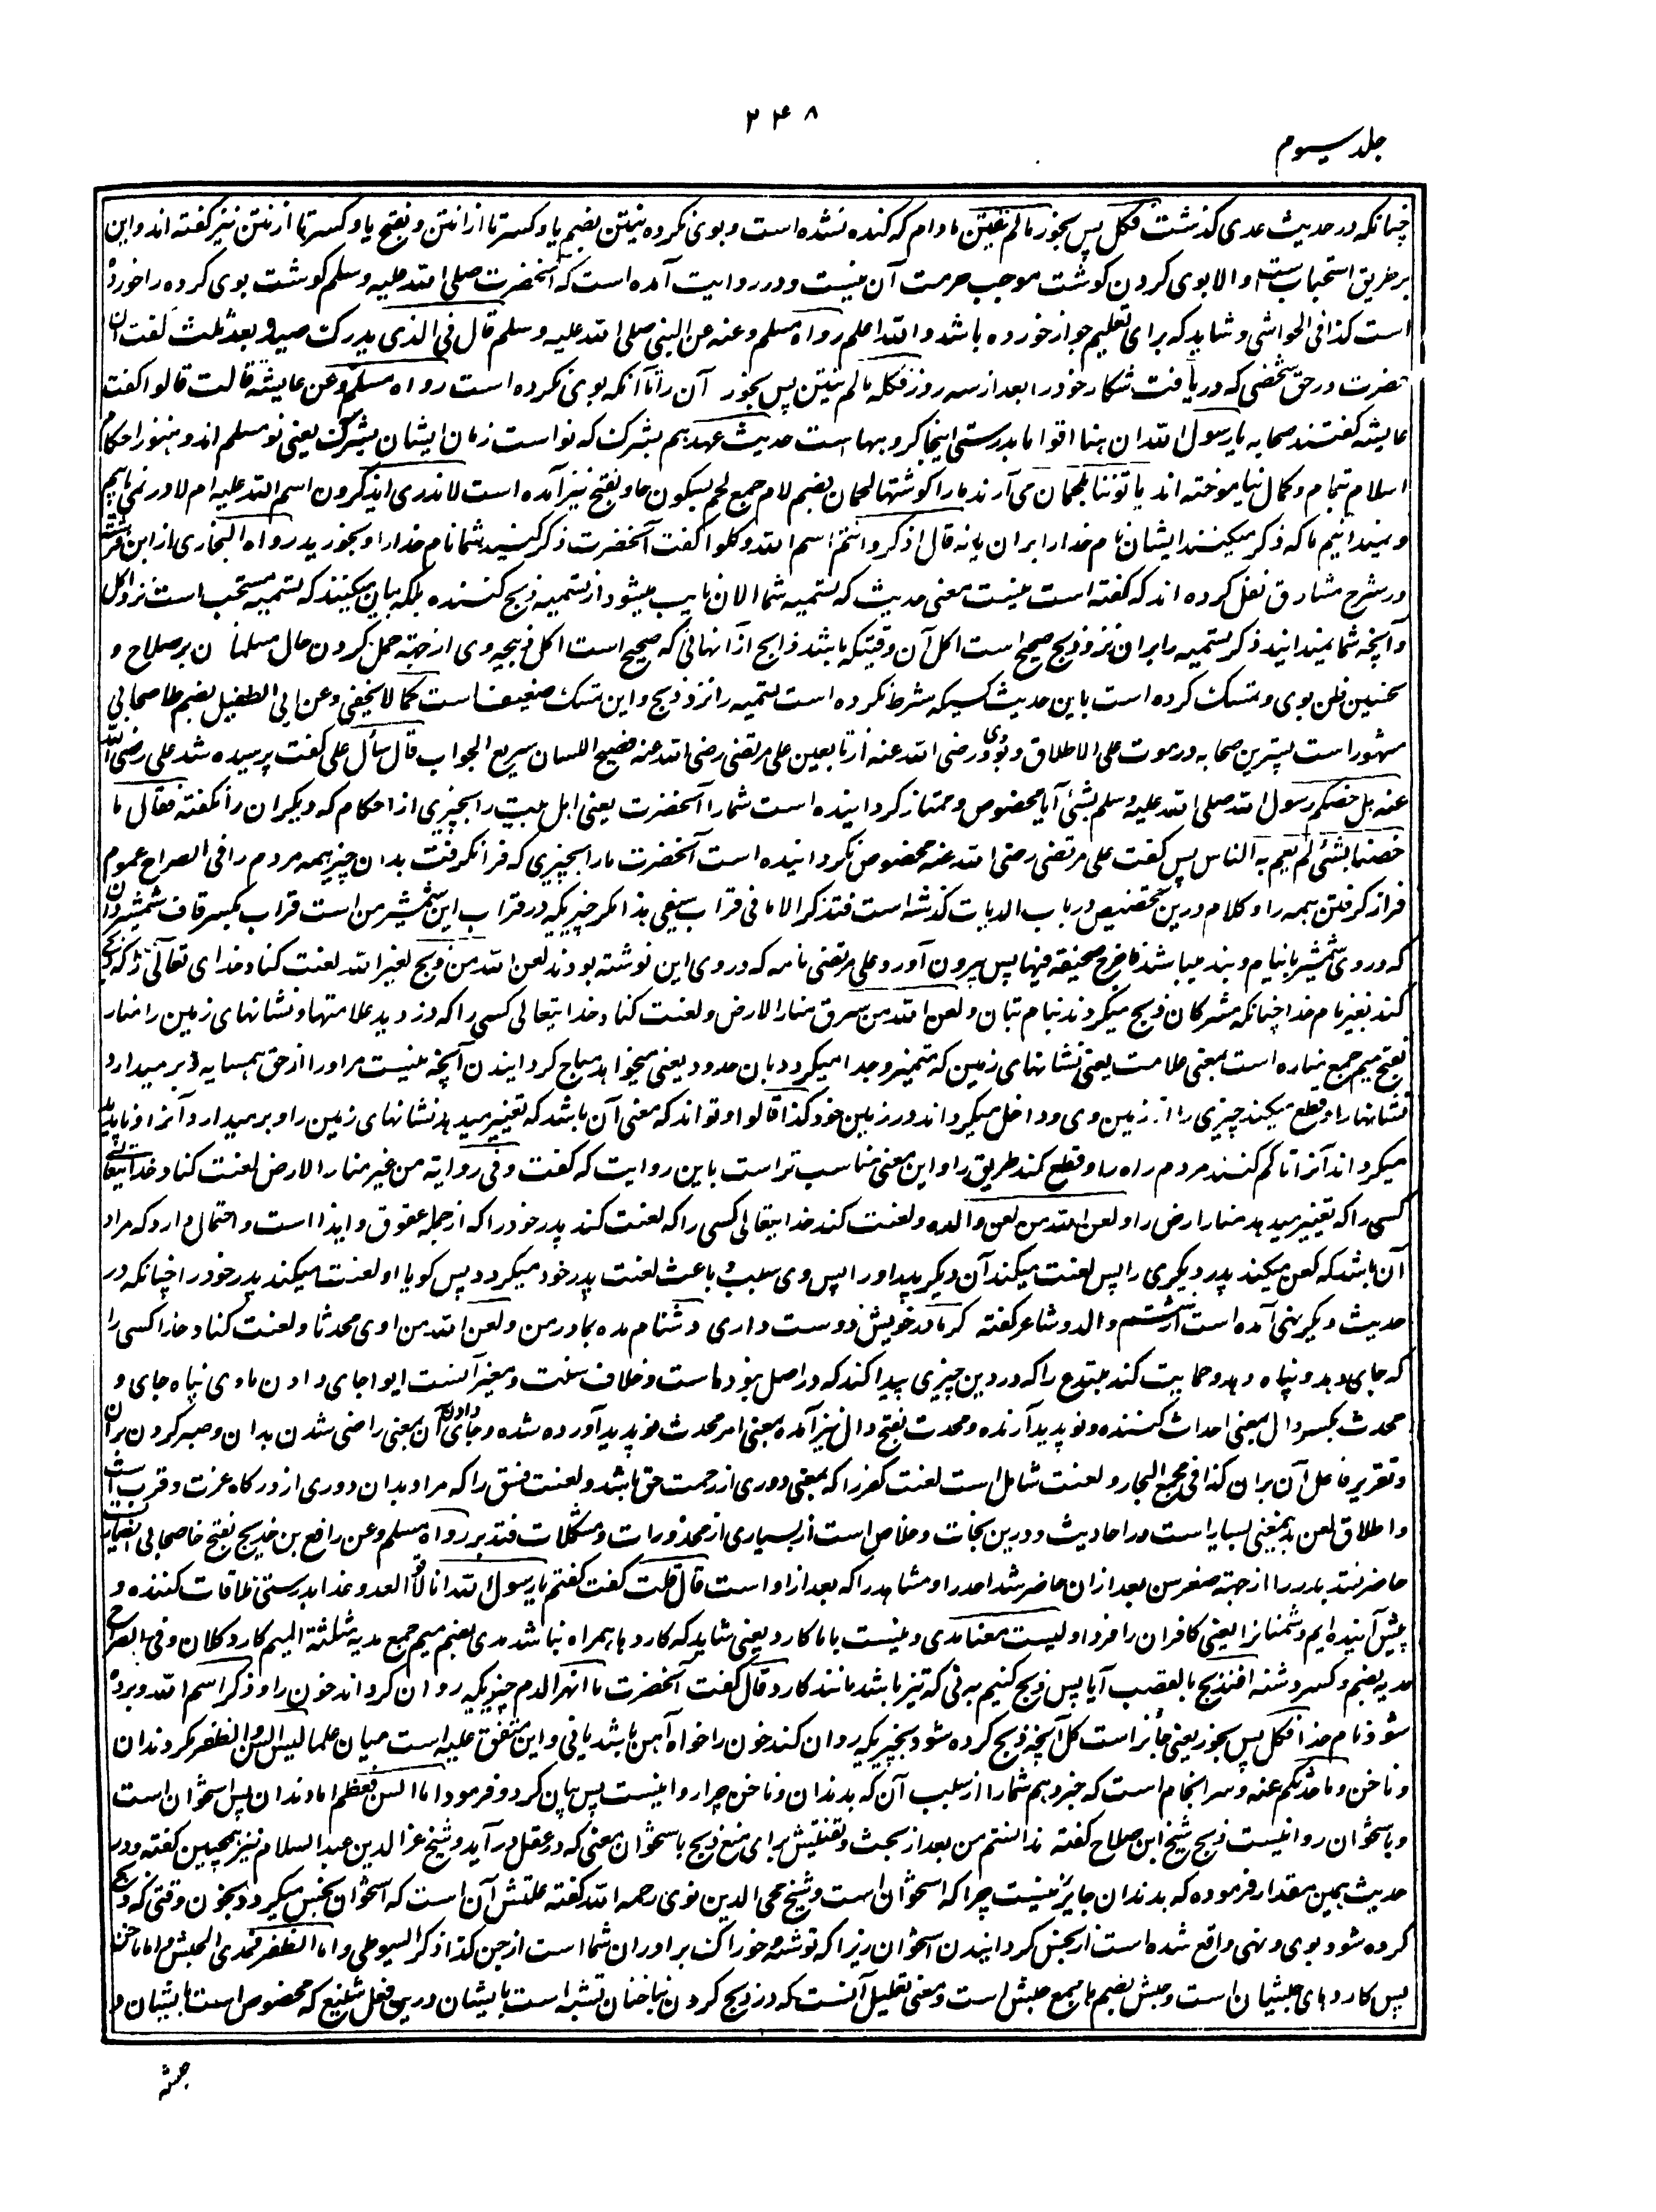 ۲۴۸
جلد سیوم
چنانکه در حدیث عدی کذشت فکل پس بخور مالم ینتن مادام که کنده نشده است و بوی نکرده ینتن بضم یا و کسر تا از انتن و بفتح یا و کسر تا از نتن نیز کفته اند و این
بر طریق استحباب ست و الا بوی کردن کوشت موجب حرمت آن نیست و در روایت آمده است که آنحضرت صلی الله علیه وسلم کوشت بوی کرده را خورده
است کذا فی الحواشی و شاید که برای تعلیم جواز خورده باشد و الله اعلم رواه مسلم وعنه عن النبی صلی الله علیه وسلم قال فی الذی یدرک صیده بعد ثلث کفت آن
حضرت در حق شخصی که دریافت شکار خود را بعد از سه روز فکله مالم ینتن پس بخور آن را تا آنکه بوی نکرده است رواه مسلم وعن عایشة قالت قالوا کفت
عایشه کفتند صحابه یا رسول الله ان هنا اقواما بدرستی اینجا کروهها است حدیث عهدهم بشرک که نو است زمان ایشان بشرک یعنی نو مسلم اند و هنوز احکام
اسلام بتمام و کمال نیاموخته اند یاتوننا بلحمان می آرند ما را کوشتها لحمان بضم لام جمع لحم بسکون حا و بفتح نیز آمده است لا ندری ایذکرون اسم الله علیه ام لا در نمی یابیم
و نمیدانیم ما که ذکر میکنند ایشان نام خدا را بران یا نه قال اذکروا انتم اسم الله وکلوا کفت آنحضرت ذکر کنید شما نام خدا را و بخورید رواه البخاری از ابن
در شرح مشارق نقل کرده اند که کفته است نیست معنی حدیث که تسمیه شما الان نایب میشود از تسمیه ذبح کننده بلکه بیان میکنند که تسمیه مستحب است نزد اکل
و آنچه شما نمیدانید ذکر تسمیه را بران نزد ذبح صحیح است اکل آن وقتیکه باشد ذابح از آنهائی که صحیح است اکل ذبیحه وی از جهة حمل کردن حال مسلمانان بر صلاح و
تحسین ظن بوی و تمسک کرده است باین حدیث کسیکه شرط نکرده است تسمیه را نزد ذبح و این تمسک ضعیف است کما لا یخفی وعن ابی الطفیل بضم طا صحابی
مشهور است پسترین صحابه در موت علی الاطلاق و بود وی رضی الله عنه از تابعین علی مرتضی رضی الله عنه فصیح اللسان سریع الجواب قال سأل علی کفت پرسیده شد علی رضی الله
عنه هل خصکم رسول الله صلی الله علیه وسلم بشئ آیا مخصوص و ممتاز کردانیده است شما را آنحضرت یعنی اهل بیت را بچیزی از احکام که دیکران را نکفته فقال ما
خصنا بشئ لم یعم به الناس پس کفت علی مرتضی رضی الله عنه مخصوص نکردانیده است آنحضرت ما را بچیزی که فرا نکرفت بدان چیز همه مردم را فی الصراح عموم
فراز کرفتن همه را و کلام درین تخصیص در باب الدیات کذشته است فتذکر الا ما فی قراب سیفی هذا مکر چیزیکه در قراب این شمشیر من است قراب بکسر قاف شمشیردان
که در وی شمشیر با نیام و بند میباشد فاخرج صحیفة فیها پس بیرون آورد علی مرتضی نامه که در وی این نوشته بودند لعن الله من ذبح لغیر الله لعنت کناد خدای تعالی آنرا که ذبح
کند بغیر نام خدا چنانکه مشرکان ذبح میکردند بنام بتان ولعن الله من سرق منار الارض ولعنت کناد خدایتعالی کسی را که دزدید علامتها و نشانهای زمین را منار
بفتح میم جمع مناره است بمعنی علامت یعنی نشانهای زمین که متمیز و جدا میکردد بآن حدود یعنی میخواهد مباح کردانیدن آنچه نیست مر او را از حق همسایه و بر میدارد
نشانها را و قطع میکند چیزی را از زمین وی و داخل میکرداند در زمین خود کذا قالوا و تواند که معنی آن باشد که تغییر میدهد نشانهای زمین را و بر میدارد آنرا و ناپدید
میکرداند آنرا تا کم کنند مردم راه را و قطع کند طریق را و این معنی مناسب تر است باین روایت که کفت وفی روایة من غیر منار الارض لعنت کناد خدایتعالی
کسی را که تغییر میدهد منار ارض را ولعن الله من لعن والده ولعنت کند خدایتعالی کسی را که لعنت کند پدر خود را که از جمله عقوق و ایذا است و احتمال دارد که مراد
آن باشد که لعن میکند پدر دیکری را پس لعنت میکند آن دیکر پدر او را پس وی سبب و باعث لعنت پدر خود میکردد پس کویا او لعنت میکند پدر خود را چنانکه در
حدیث دیکر نهی آمده است از شتم والد و شاعر کفته کر مادر خویش دوست داری دشنام مده بمادر من ولعن الله من اوی محدثا ولعنت کناد خدا کسی را
که جای دهد و پناه دهد و حمایت کند مبتدع را که در دین چیزی پیدا کند که در اصل نبود ماست و خلاف سنت و مغیر آنست ایوا جای دادن ماوی پناه جای و
محدث بکسر دال بمعنی احداث کننده و نو پدید آرنده و محدث بفتح دال نیز آمده بمعنی امر محدث نو پدید آورده شده و جای دادن آن بمعنی راضی شدن بدان و صبر کردن بران
و تقریر فاعل آن بران کذا فی مجمع البحار ولعنت شامل است لعنت کفر را که بمعنی دوری از رحمت حق باشد و لعنت فسق را که مراد بدان دوری از درکاه عزت و قرب است
و اطلاق لعن بهمین معنی بسیار است در احادیث و درین نجات و خلاص است از بسیاری از محذورات و مشکلات فتدبر رواه مسلم وعن رافع بن خدیج بفتح خا صحابی انصاری
حاضر نشد بدر را از جهة صغر سن بعد ازان حاضر شد احد را و مشاهد را که بعد از او است قال قلت کفت کفتم یا رسول الله انا لاقوا العدو غدا بدرستی ملاقات کننده و
پیش آینده ایم دشمنان را یعنی کافران را فردا ولیست معنا مدی و نیست با ما کارد یعنی شاید که کاردها همراه نباشد مدی بضم میم جمع مدیه مثلثة المیم کارد کلان وفی الصراح
مدیه بضم و کسر دشنه افنذبح بالقصب آیا پس ذبح کنیم به نی که تیز باشد مانند کارد قال کفت آنحضرت ما انهر الدم چیزیکه روان کرداند خون را وذکر اسم الله و برده
شود نام خدا فکل پس بخور یعنی جائز است کل آنچه ذبح کرده شود بچیزیکه روان کند خون را خواه آهن باشد یا نی و این متفق علیه است میان علما لیس السن والظفر مکر دندان
و ناخن وساحدثکم عنه و سر انجام است که خبر دهم شما را از سبب آن که بدندان و ناخن چرا روا نیست پس بیان کرد و فرمود اما السن فعظم اما دندان پس استخوان است
و باستخوان روا نیست ذبح شیخ ابن صلاح کفته ندانستم من بعد از بحث و تفتیش برای منع ذبح باستخوان معنی که در عقل در آید و شیخ عز الدین عبد السلام نیز همچنین کفته و در
حدیث همین مقدار فرموده که بدندان جایز نیست چرا که استخوان است و شیخ محی الدین نووی رحمه الله کفته علتش آن است که استخوان نجس میکردد بخون وقتی که ذبح
کرده شود بوی و نهی واقع شده است از نجس کردانیدن استخوان زیرا که توشه و خوراک برادران شما است از جن کذا ذکر السیوطی واما الظفر فمدی الحبش و اما ناخن
پس کاردهای حبشیان است و حبش بضم حا جمع حبش است و معنی تعلیل آنست که در ذبح کردن بناخنان تشبه است بایشان درین فعل شنیع که مخصوص است بایشان و